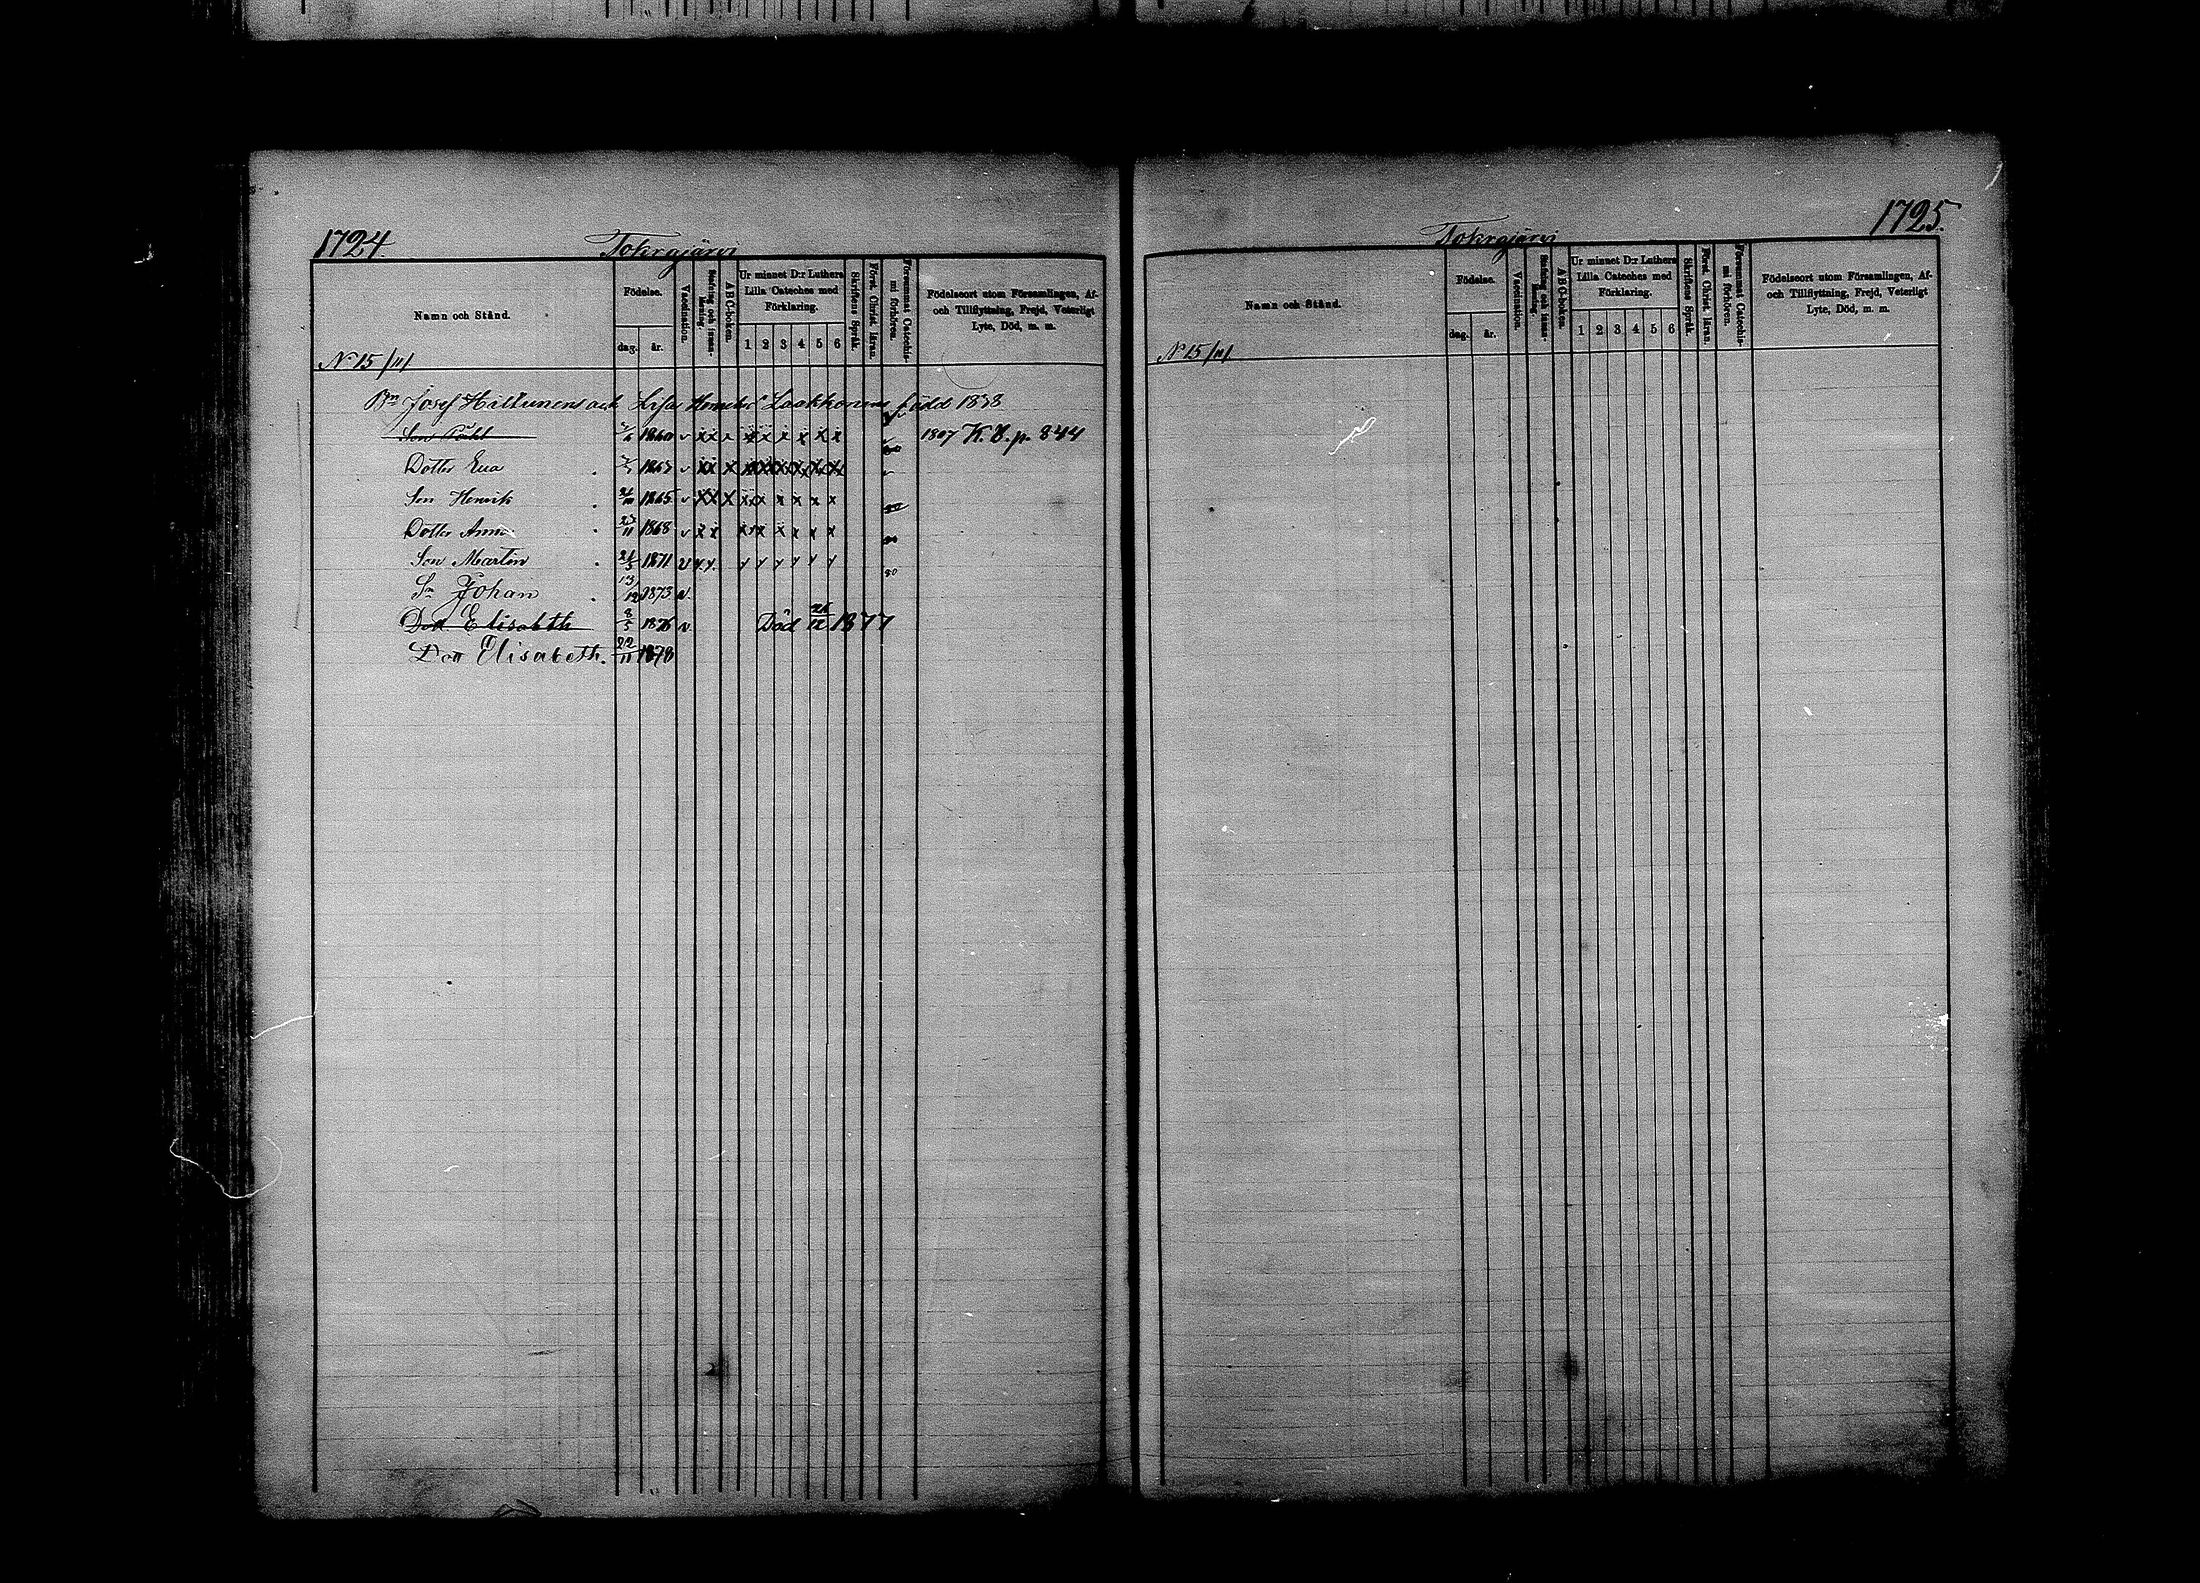 1724.
Tokrajärvi
Namn och Stånd.
Födelse.
dag. år.
Vaccination.
Stafning och innan-läsning.
ABC-boken.
Ur minnet D:r Luthers Lilla Cateches med Förklaring.
1 2 3 4 5 6
Skriftens Språk.
Först. Christ. läran.
Försummat Catechis-mi förhören.
Födelseort utom Församlingen, Af- och Tillflyttning, Frejd, Veterligt Lyte, Död, m. m.
N 15/11/
Bn Josef Hiltunens och Lisa Henrikd:r Laakkonens född 1838
Son Påhl 1860 v x x x x x x x x 1807 K. B. p. 844
Dotter Eva 1863 v x x x x x x x x x
Son Henrik 1865 v x x x x x x x x x
Dotter Anna 23/11 1868 v x x x x x x x x
Son Martin 21/5 1871 v y y y y y y y y
Sn Johan 13/12 1873 v
Dott Elisabeth 8/5 1876 v Död 26/12 1877
Dott Elisabeth. 22/11 1878
1725.
Tokrajärvi
Namn och Stånd.
Födelse.
dag. år.
Vaccination.
Stafning och innan-läsning.
ABC-boken.
Ur minnet D:r Luthers Lilla Cateches med Förklaring.
1 2 3 4 5 6
Skriftens Språk.
Först. Christ. läran.
Försummat Catechis-mi förhören.
Födelseort utom Församlingen, Af- och Tillflyttning, Frejd, Veterligt Lyte, Död, m. m.
N 15/11/